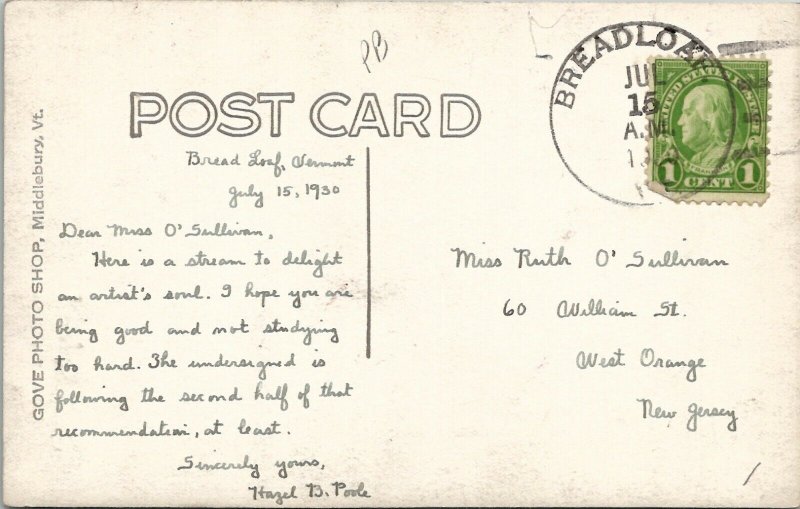 PB
BREADLOAF
JUL
15
A.M.
UNITED STATES POSTAGE
FRANKLIN
1 CENT 1
POST CARD
GOVE PHOTO SHOP, Middlebury, Vt.
Bread Loaf, Vermont
July 15, 1930
Dear Miss O'Sullivan,
Here is a stream to delight
an artist's soul. I hope you are
being good and not studying
too hard. The undersigned is
following the second half of that
recommendation, at least.
Sincerely yours,
Hazel B. Poole
Miss Ruth O'Sullivan
60 William St.
West Orange
New Jersey